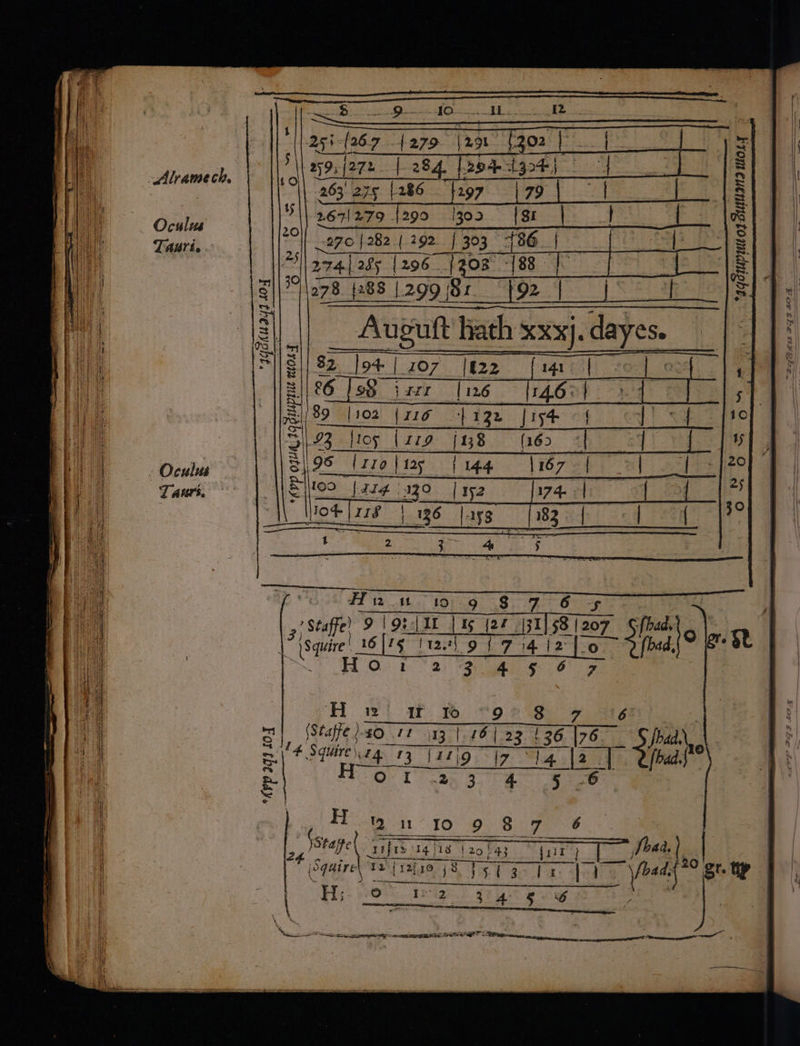 8 9 10 11 12
1 251 267 279 291 302
5 259 272 284 294 304
Alramech.
10 263 275 286 297 79
15 267 279 290 303 81
Oculus
20 270 282 292 303 86
Tauri.
25 274 285 296 308 88
30 278 288 299 81 92
From euening to midnight.
For the nyght.
August hath xxxj. dayes.
82 94 107 122 141 1
86 98 111 126 146 5
89 102 116 132 154 10
93 105 119 138 160 15
Oculus
96 110 125 144 167 20
Tauri.
100 114 130 152 174 25
104 118 136 158 183 30
From midnight vnto day.
1 2 3 4 5
H 12 11 10 9 8 7 6 5
3 Staffe 9 9 11 15 21 31 58 207 shad. 0 gr. St
Squire 16 15 12 9 7 4 2 0 shad.
H 0 1 2 3 4 5 6 7
H 12 11 10 9 8 7 6
14 Staffe 10 11 13 16 23 36 76 shad. 10
Squire 14 13 11 9 7 4 2 shad.
H 0 1 2 3 4 5 6
For the day.
H 12 11 10 9 8 7 6
24 Staffe 11 12 14 18 20 43 111 shad. 20 gr.
Squire 12 12 10 8 5 3 1 shad.
H: 0 1 2 3 4 5 6